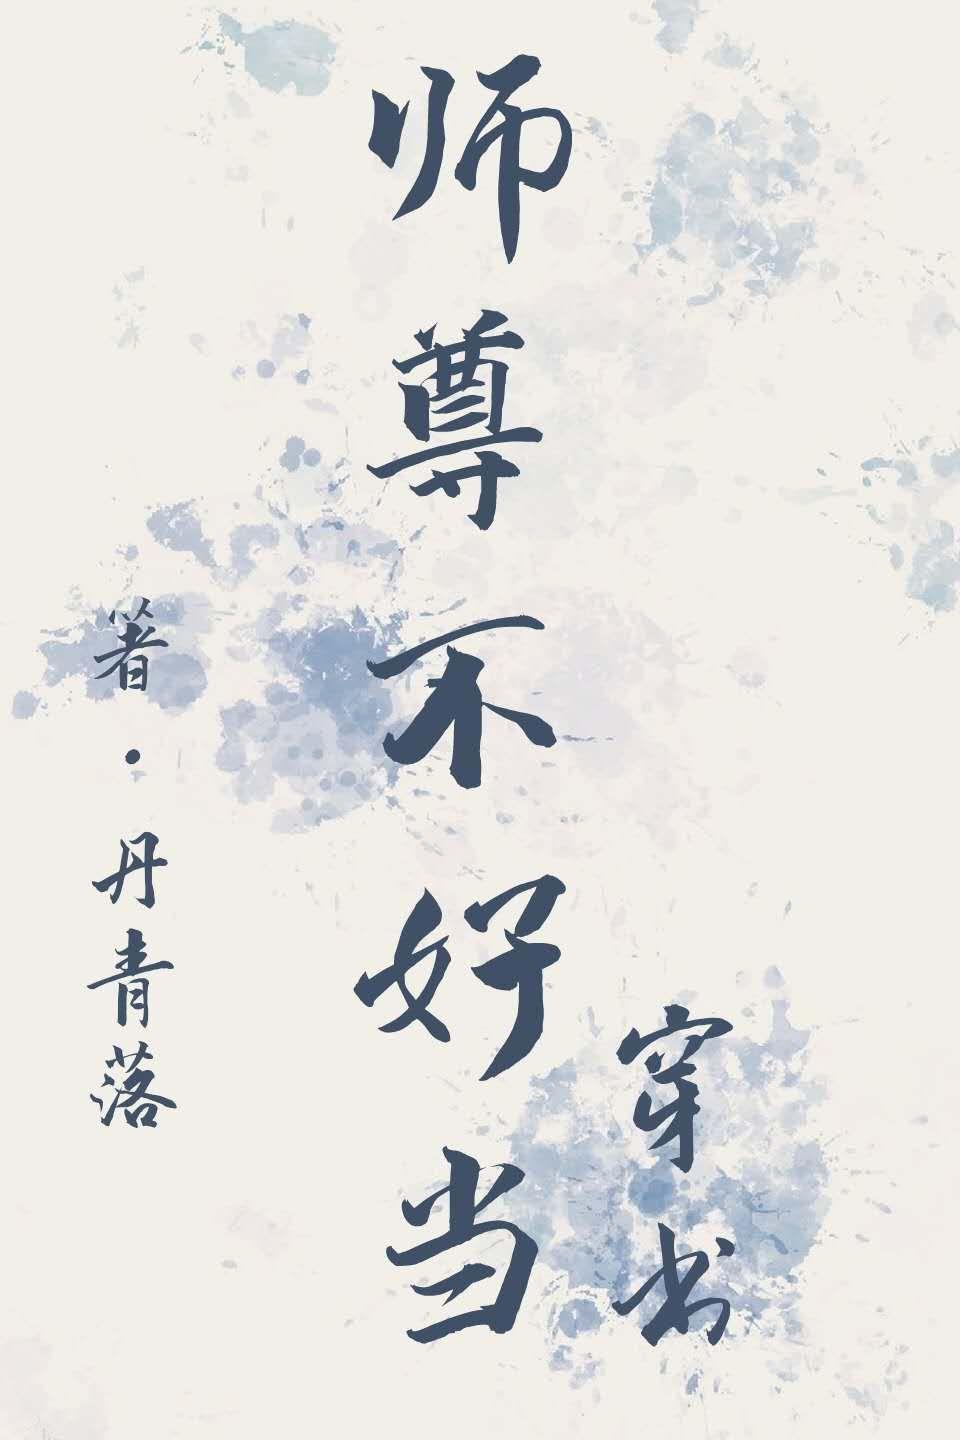 师尊不好当
穿书
著·丹青落